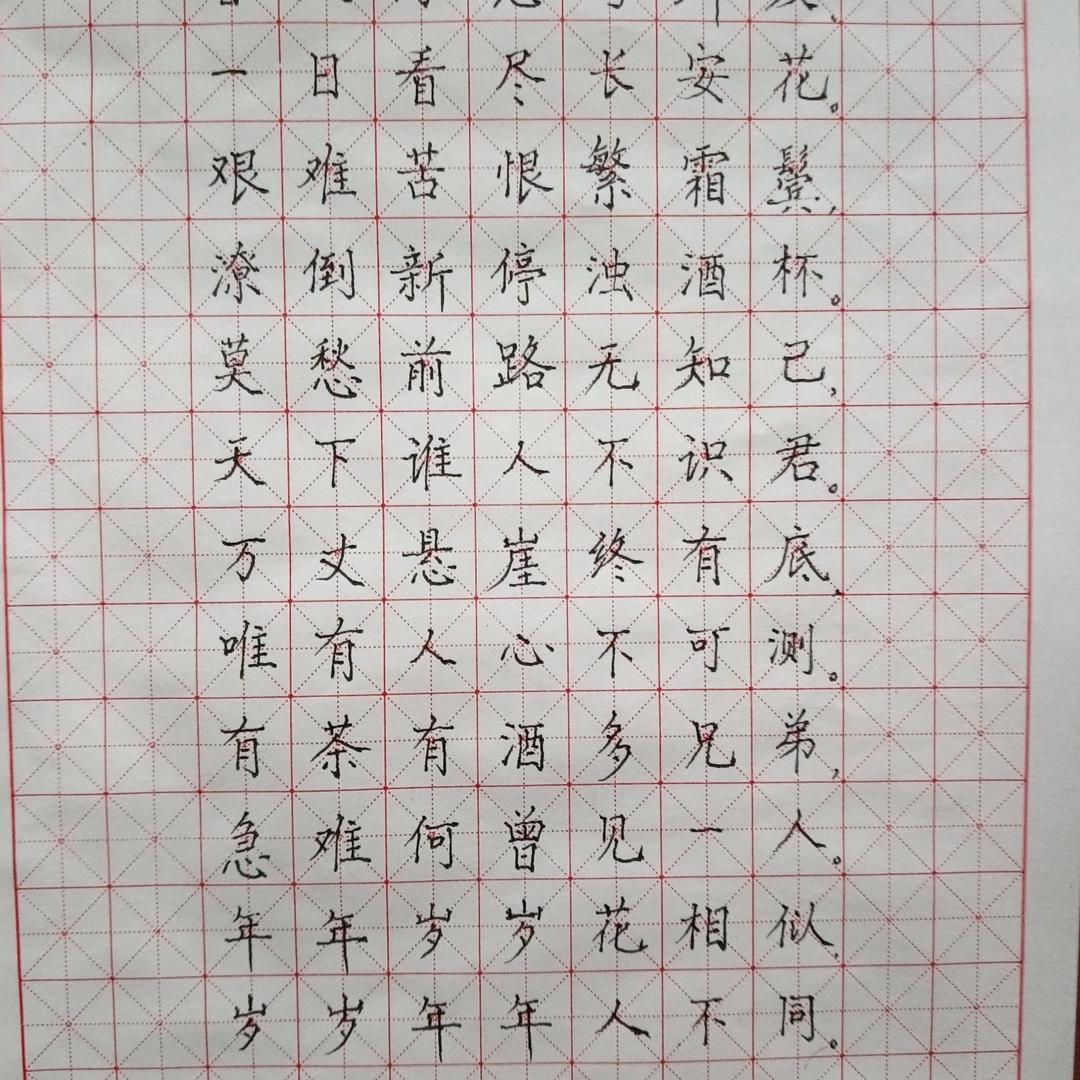 一日看尽长安花。
艰难苦恨繁霜鬓，
潦倒新停浊酒杯。
莫愁前路无知己，
天下谁人不识君。
万丈悬崖终有底，
唯有人心不可测。
有茶有酒多兄弟，
急难何曾见一人。
年年岁岁花相似，
岁岁年年人不同。